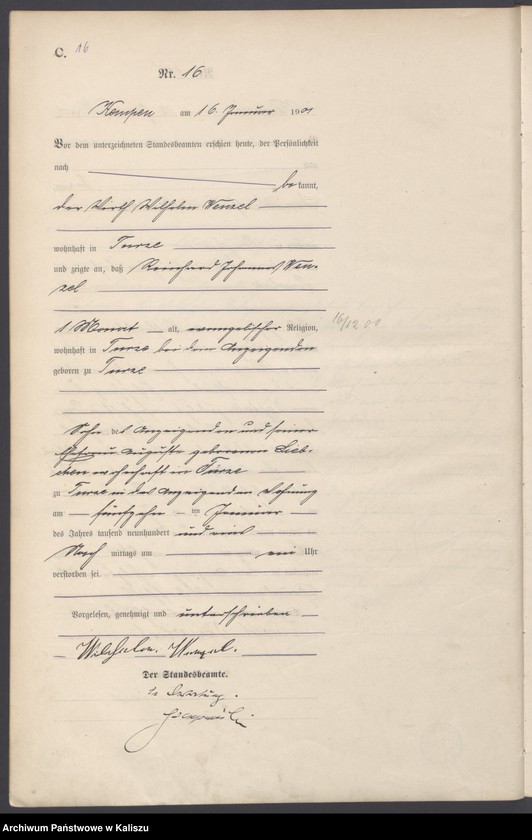 C. 16
Nr. 16
Kempen am 16 Januar 1901
Vor dem unterzeichneten Standesbeamten erschien heute, der Persönlichkeit
nach
bekannt,
der Wirth Wilhelm Wenzel
wohnhaft in Turze
und zeigte an, daß Reinhard Johannes Wen-
zel
1 Monat alt, evangelischer Religion,
16/12 00
wohnhaft in Turze bei dem Anzeigenden
geboren zu Turze
Sohn des Anzeigenden und seiner
Ehefrau Auguste geborenen Lieb-
chen wohnhaft in Turze
zu Turze in des Anzeigenden Wohnung
am fünfzehn ten Januar
des Jahres tausend neunhundert und eins
Nach mittags um ein Uhr
verstorben sei.
Vorgelesen, genehmigt und unterschrieben
Wilhelm Wenzel.
Der Standesbeamte.
In Vertretung.
Archiwum Państwowe w Kaliszu